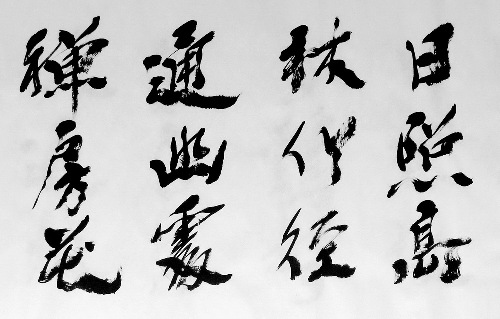 日照高
林竹徑
通幽處
禪房花